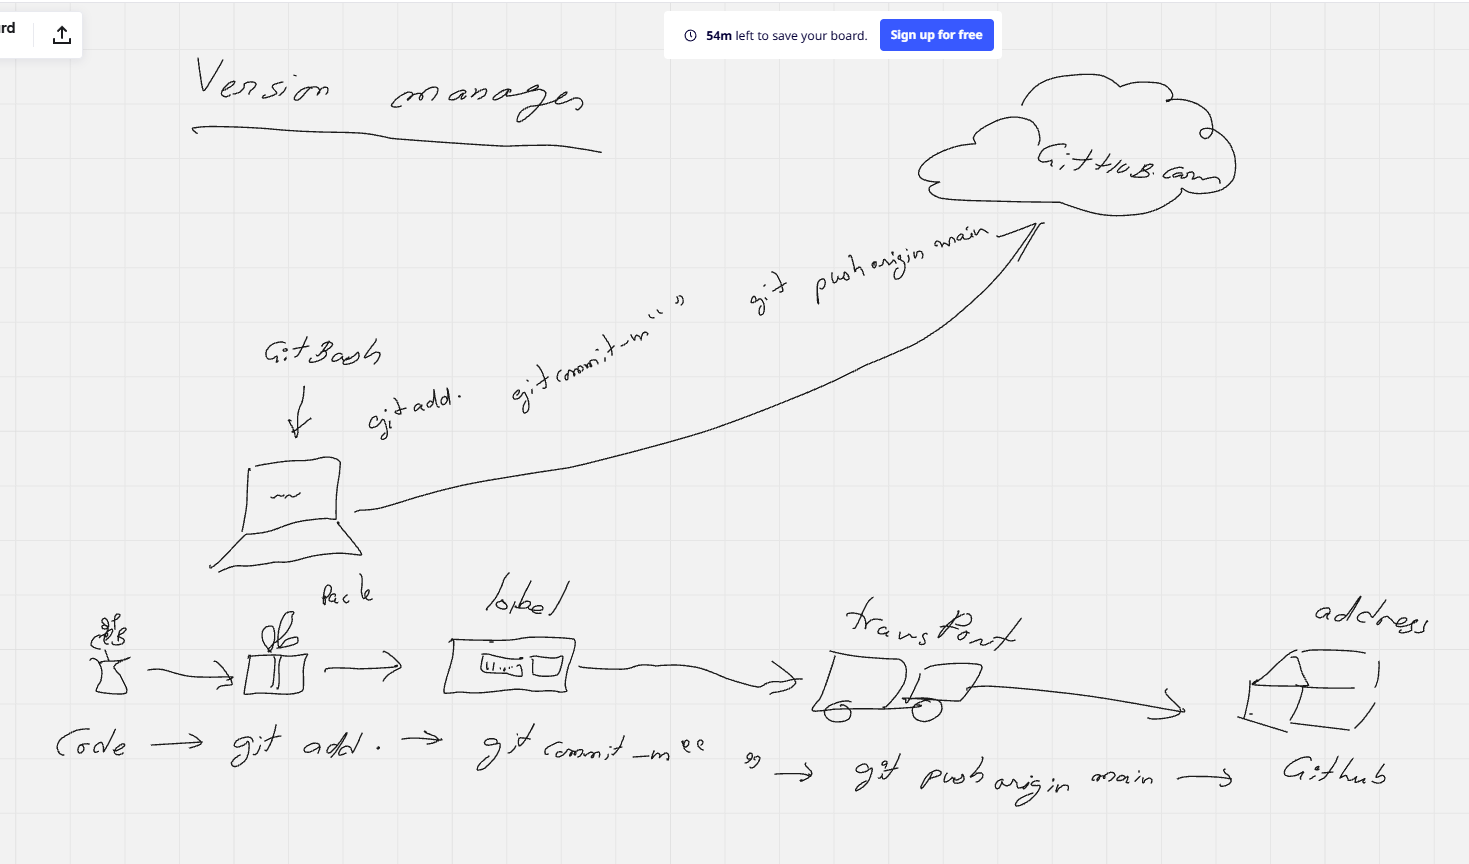 rd
54m left to save your board.
Sign up for free
Version manages
GitHUB.com
git add. git commit -m “ ” git push origin main
Git Bash
Pack
label
transPort
address
Code → git add . → git commit -m “ ” → git push origin main → Github